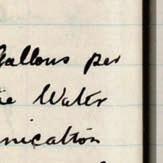 Gallons per
Water
nication